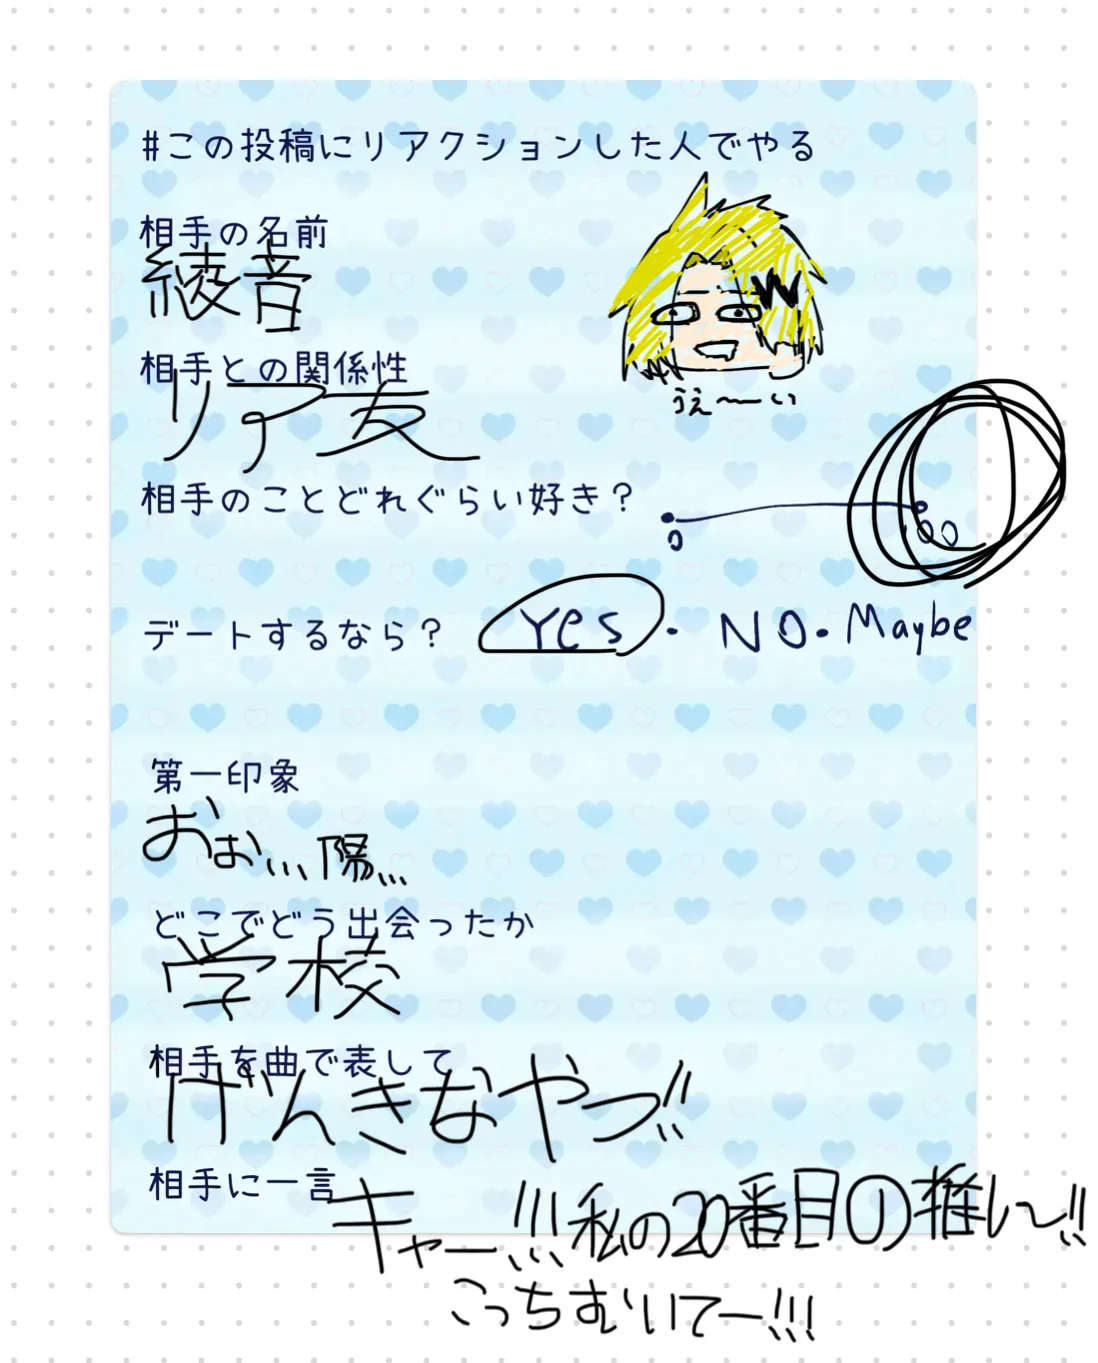 #この投稿にリアクションした人でやる
相手の名前
綾音
相手との関係性
リア友
うぇ〜い
相手のことどれぐらい好き？
0 100
デートするなら？ Yes・NO・Maybe
第一印象
おぉ、、、陽、、、
どこでどう出会ったか
学校
相手を曲で表して
げんきなやつ!!
相手に一言
キャー!!!私の20番目の推し〜!!
こっちむいてー!!!